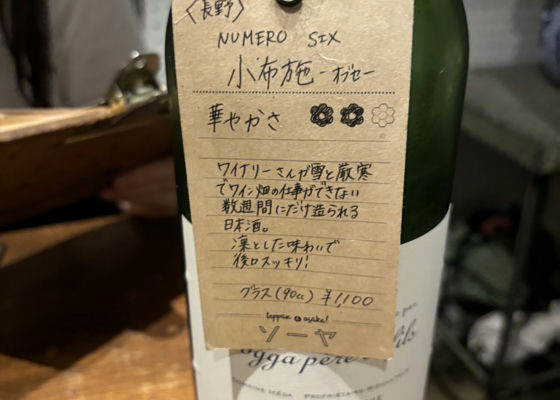 〈長野〉
NUMERO SIX
小布施-オブセ-
華やかさ
ワイナリーさんが雪と厳寒
でワイン畑の仕事ができない
数週間にだけ造られる
日本酒。
凜とした味わいで
後口スッキリ!
グラス(90cc) ¥1,100
teppan & osake!
ソーヤ
ogga père
fils
DOMAINE IKEDA